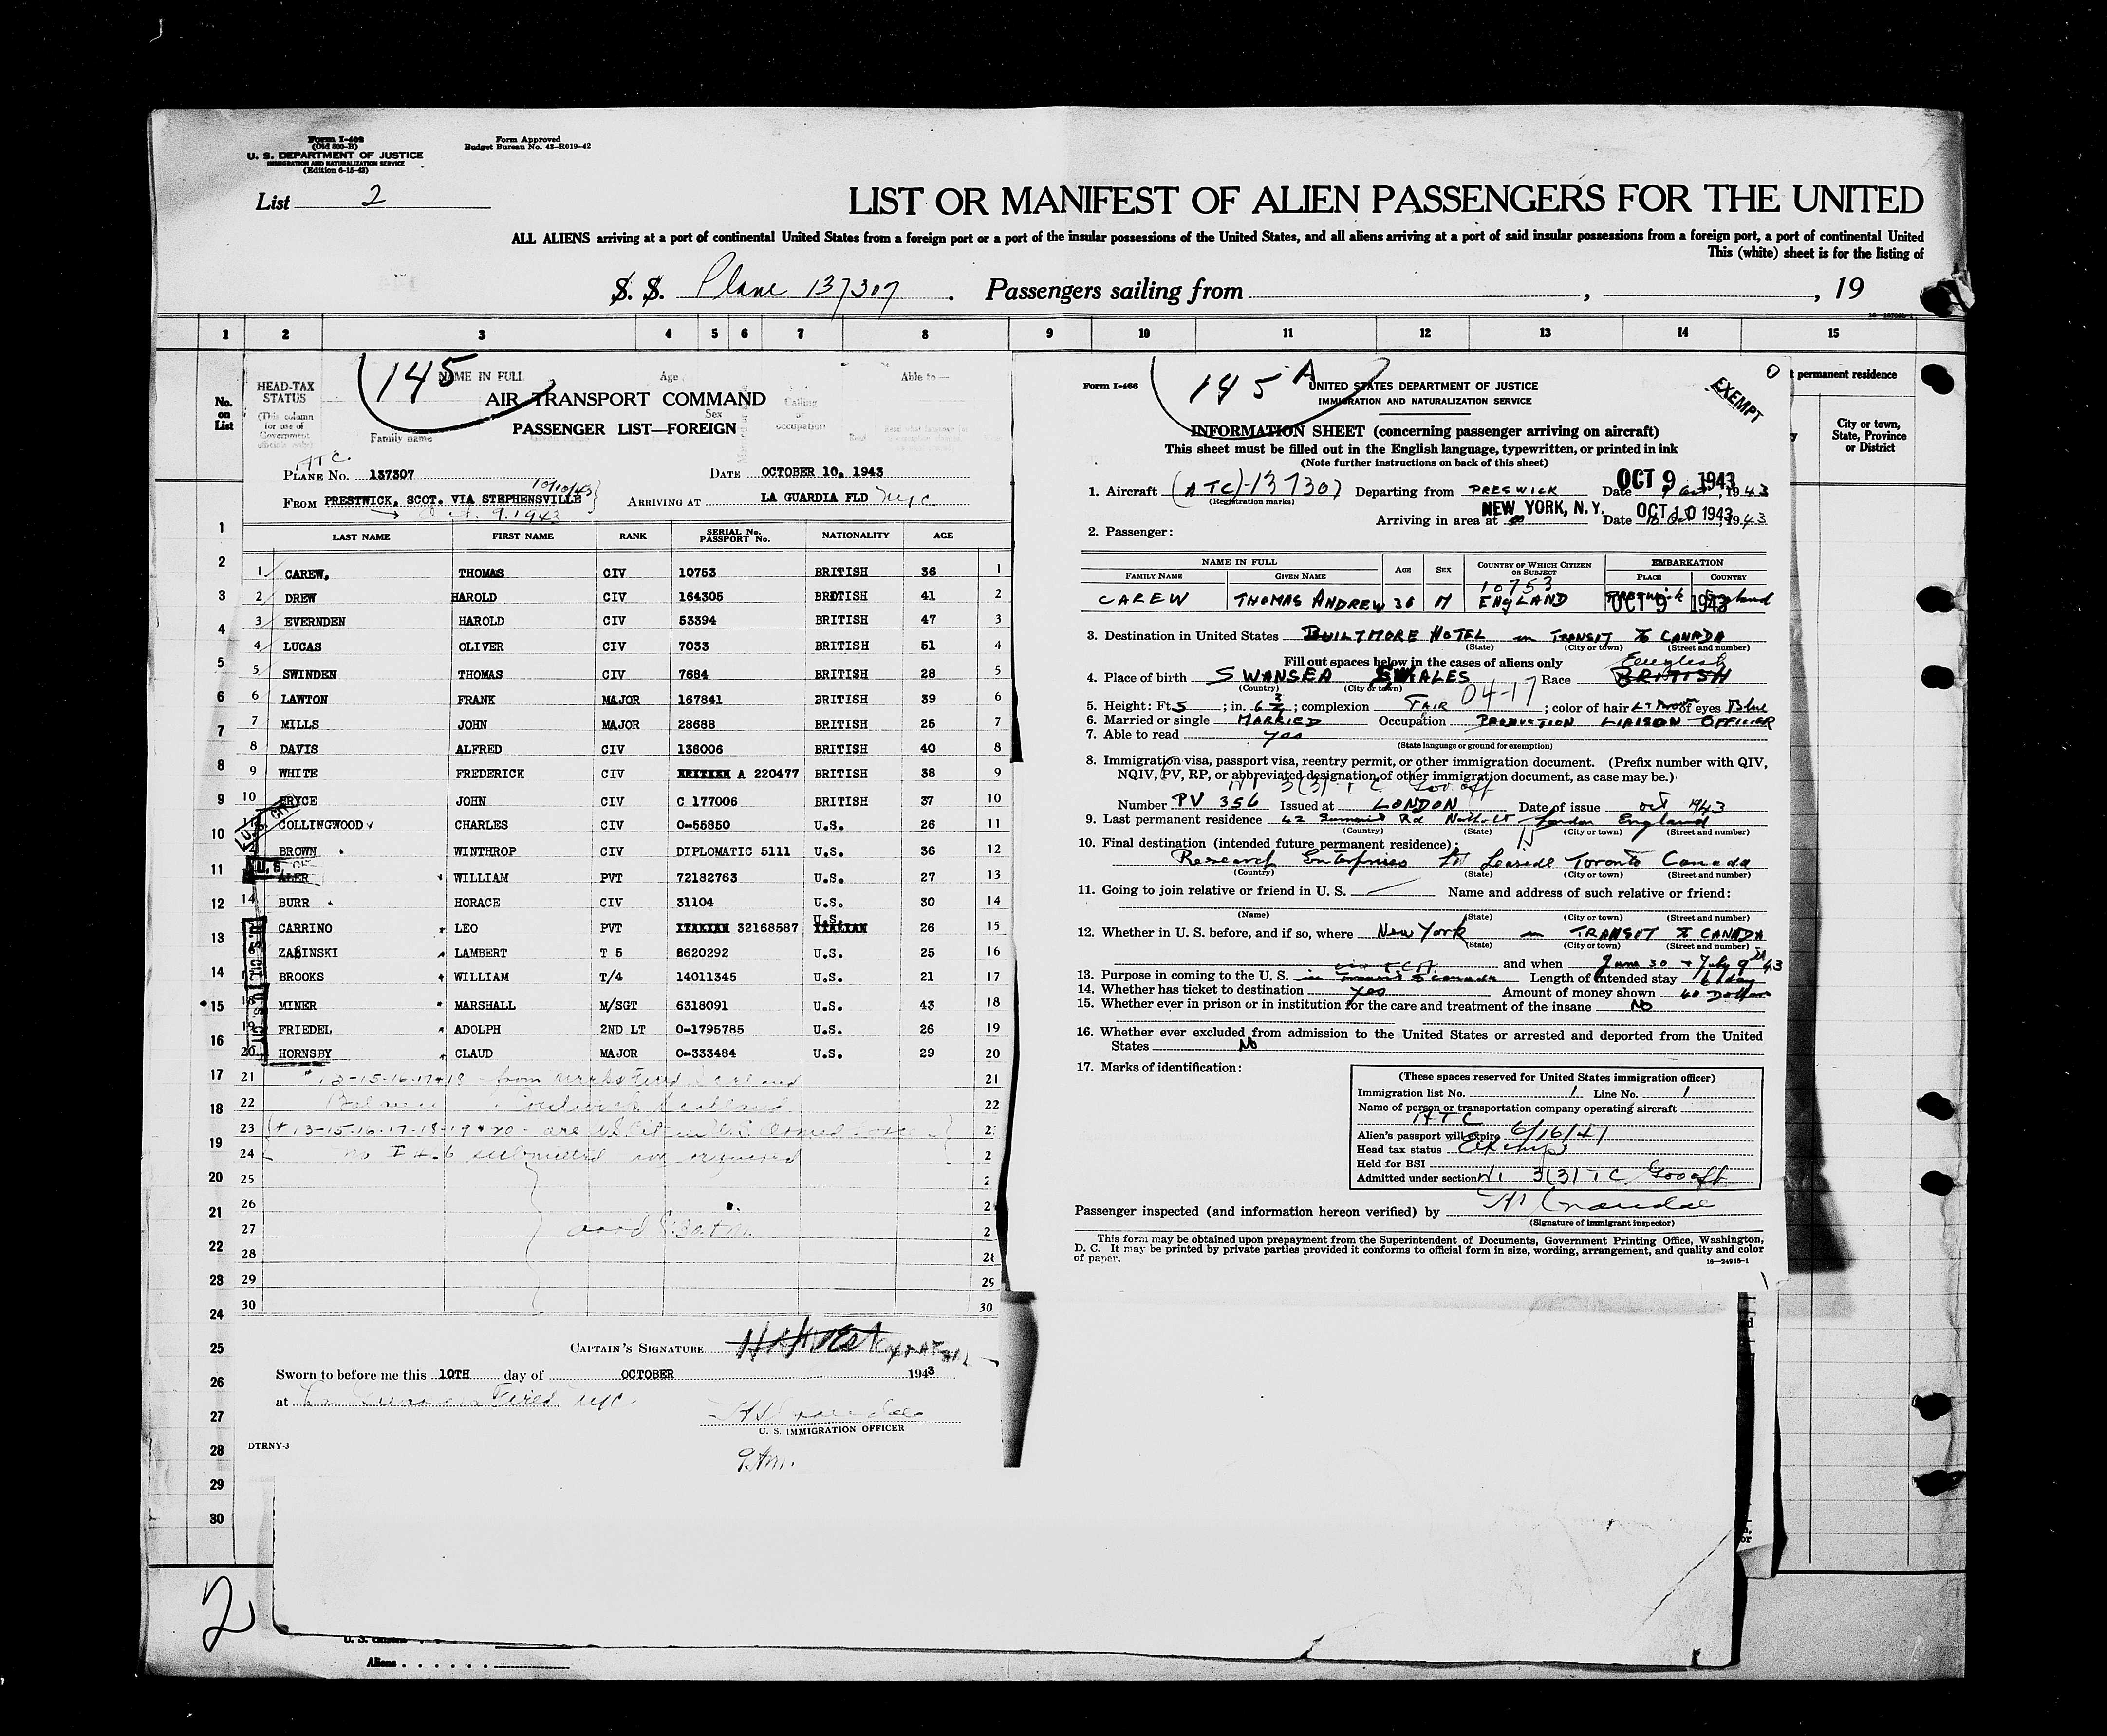 Form I-466
(Old 500-B)
U. S. DEPARTMENT OF JUSTICE
IMMIGRATION AND NATURALIZATION SERVICE
(Edition 6-15-43)
Form Approved
Budget Bureau No. 43-R019-42
List 2
LIST OR MANIFEST OF ALIEN PASSENGERS FOR THE UNITED
ALL ALIENS arriving at a port of continental United States from a foreign port or a port of the insular possessions of the United States, and all aliens arriving at a port of said insular possessions from a foreign port, a port of continental United
This (white) sheet is for the listing of
S. S. Plane 137307 . Passengers sailing from , , 19
1 2 3 4 5 6 7 8 9 10 11 12 13 14 15
No. on List
HEAD-TAX STATUS
(This column for use of Government officials only)
NAME IN FULL
Age
Able to—
145
AIR TRANSPORT COMMAND
Sex
Calling or occupation
PASSENGER LIST—FOREIGN
Family name
Read
ATC
PLANE No. 137307 DATE OCTOBER 10, 1943
10/10/43
FROM PRESTWICK, SCOT. VIA STEPHENSVILLE ARRIVING AT LA GUARDIA FLD NYC
Oct. 9. 1943
LAST NAME FIRST NAME RANK SERIAL No. PASSPORT No. NATIONALITY AGE
1 CAREW, THOMAS CIV 10753 BRITISH 36 1
2 DREW HAROLD CIV 164305 BRITISH 41 2
3 EVERNDEN HAROLD CIV 53394 BRITISH 47 3
4 LUCAS OLIVER CIV 7033 BRITISH 51 4
5 SWINDEN THOMAS CIV 7684 BRITISH 28 5
6 LAWTON FRANK MAJOR 167841 BRITISH 39 6
7 MILLS JOHN MAJOR 28688 BRITISH 25 7
8 DAVIS ALFRED CIV 136006 BRITISH 40 8
9 WHITE FREDERICK CIV A 220477 BRITISH 38 9
10 BRYCE JOHN CIV C 177006 BRITISH 37 10
COLLINGWOOD CHARLES CIV O-55850 U.S. 26 11
BROWN WINTHROP CIV DIPLOMATIC 5111 U.S. 36 12
WILLIAM PVT 72182763 U.S. 27 13
14 BURR HORACE CIV 31104 U.S. 30 14
CARRINO LEO PVT ITALIAN 32168587 U.S. ITALIAN 26 15
ZABINSKI LAMBERT T 5 8620292 U.S. 25 16
17 BROOKS WILLIAM T/4 14011345 U.S. 21 17
18 MINER MARSHALL M/SGT 6318091 U.S. 43 18
19 FRIEDEL ADOLPH 2ND LT O-1795785 U.S. 26 19
20 HORNSBY CLAUD MAJOR O-333484 U.S. 29 20
U.S. CIT
21 13-15-16-17+18 from 21
22 22
23 13-15-16-17-18-19+20 - are US Cit in US Armed
24 no submitted required
25
26
27 arrd
28
29
30 30
CAPTAIN'S SIGNATURE
Sworn to before me this 10TH day of OCTOBER 1943
at La Guardia Field NYC
U. S. IMMIGRATION OFFICER
DTRNY-3
9 AM.
2
U. S. citizens
Aliens
Form I-466
145 A
UNITED STATES DEPARTMENT OF JUSTICE
IMMIGRATION AND NATURALIZATION SERVICE
EXEMPT
INFORMATION SHEET (concerning passenger arriving on aircraft)
This sheet must be filled out in the English language, typewritten, or printed in ink
(Note further instructions on back of this sheet)
OCT 9 1943
1. Aircraft (ATC)-137307 Departing from PRESWICK Date 9 Oct, 1943
(Registration marks)
NEW YORK, N.Y. OCT 10 1943
Arriving in area at Date 10 Oct 1943
2. Passenger:
NAME IN FULL AGE SEX COUNTRY OF WHICH CITIZEN OR SUBJECT EMBARKATION
FAMILY NAME GIVEN NAME PLACE COUNTRY
10753
CAREW THOMAS ANDREW 36 M ENGLAND OCT 9 1943
3. Destination in United States BUILTMORE HOTEL in TRANSIT to CANADA
(State) (City or town) (Street and number)
Fill out spaces below in the cases of aliens only
English
4. Place of birth SWANSEA WALES Race BRITISH
(Country) (City or town)
04-17
5. Height: Ft. 5 ; in. 6 3/4 ; complexion FAIR ; color of hair LT Brown eyes Blue
6. Married or single MARRIED Occupation PRODUCTION LIAISON OFFICER
7. Able to read yes
(State language or ground for exemption)
8. Immigration visa, passport visa, reentry permit, or other immigration document. (Prefix number with QIV, NQIV, PV, RP, or abbreviated designation of other immigration document, as case may be.)
3(3) TC Gov off
Number PV 356 Issued at LONDON Date of issue Oct 1943
9. Last permanent residence 42 Rd Northolt London England
(Country) (State) (City or town) (Street and number)
10. Final destination (intended future permanent residence):
Research Enterprises Ltd Leaside Toronto Canada
(Country) (State) (City or town) (Street and number)
11. Going to join relative or friend in U. S. Name and address of such relative or friend:
(Name) (State) (City or town) (Street and number)
12. Whether in U. S. before, and if so, where New York in TRANSIT to CANADA
(State) (City or town) (Street and number)
and when June 30 + July 9th 43
13. Purpose in coming to the U. S. in transit to Canada Length of intended stay 1 day
14. Whether has ticket to destination yes Amount of money shown 40 Dollars
15. Whether ever in prison or in institution for the care and treatment of the insane NO
16. Whether ever excluded from admission to the United States or arrested and deported from the United
States No
17. Marks of identification:
(These spaces reserved for United States immigration officer)
Immigration list No. 1 Line No. 1
Name of person or transportation company operating aircraft
ATC
Alien's passport will expire 6/16/41
Head tax status Exempt
Held for BSI
Admitted under section 3(3) TC Gov off
Passenger inspected (and information hereon verified) by
(Signature of immigrant inspector)
This form may be obtained upon prepayment from the Superintendent of Documents, Government Printing Office, Washington,
D. C. It may be printed by private parties provided it conforms to official form in size, wording, arrangement, and quality and color
of paper.
16—24915-1
permanent residence
City or town, State, Province or District
1
2
3
4
5
6
7
8
9
10
11
12
13
14
15
16
17
18
19
20
21
22
23
24
25
26
27
28
29
30